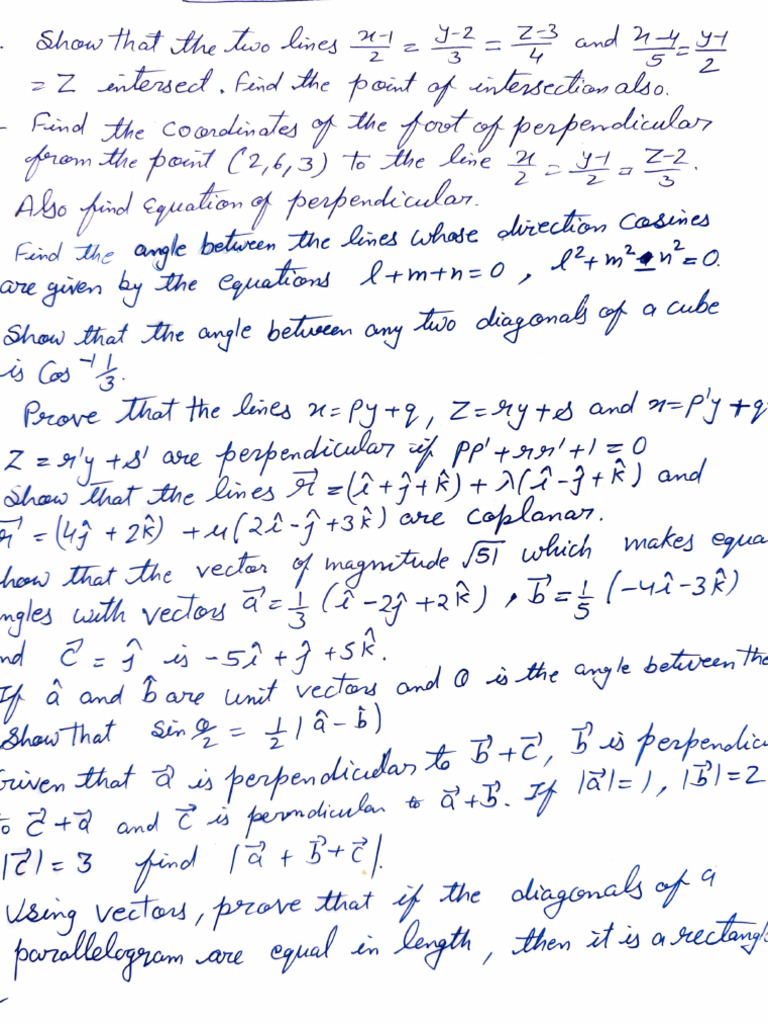 . Show that the two lines (x-1)/2 = (y-2)/3 = (z-3)/4 and (x-4)/5 = (y-1)/2
= Z intersect. Find the point of intersection also.
- Find the coordinates of the foot of perpendicular
from the point (2,6,3) to the line x/2 = (y-1)/2 = (z-2)/3.
Also find equation of perpendicular.
Find the angle between the lines whose direction cosines
are given by the equations l+m+n=0 , l²+m²-n²=0.
Show that the angle between any two diagonals of a cube
is Cos⁻¹ 1/3.
Prove that the lines x=py+q, z=ry+s and x=p'y+q
z=r'y+s' are perpendicular if pp'+rr'+1=0
Show that the lines r⃗ = (î+ĵ+k̂)+λ(î-ĵ+k̂) and
r⃗ = (4ĵ+2k̂) +μ(2î-ĵ+3k̂) are coplanar.
how that the vector of magnitude √51 which makes equa
ngles with vectors a⃗ = 1/3 (î-2ĵ+2k̂), b⃗ = 1/5 (-4î-3k̂)
nd c⃗ = ĵ is -5î+ĵ+5k̂.
If â and b̂ are unit vectors and θ is the angle between the
Show that sin θ/2 = 1/2 |â-b̂|
Given that a⃗ is perpendicular to b⃗+c⃗, b⃗ is perpendic
to c⃗+a⃗ and c⃗ is perpendicular to a⃗+b⃗. If |a⃗|=1, |b⃗|=2
|c⃗|=3 find |a⃗+b⃗+c⃗|.
Using vectors, prove that if the diagonals of a
parallelogram are equal in length, then it is a rectangl